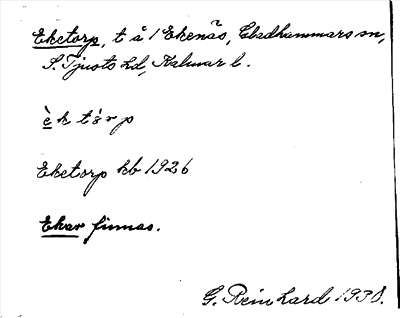 Eketorp, t å 1 Ekenäs, Gladhammars sn,
S. Tjusts hd, Kalmar l.
è k tårp
Eketorp kb 1926
Ekar finnas.
G. Reinhard 1938.